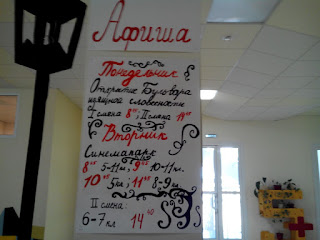 Афиша
Понедельник
Открытие Бульвара
изящной словесности
I смена 8⁰⁰; II смена 14⁰⁰
Вторник
Синемапарк
8⁰⁰ 5-11кл. 9⁰⁰ 10-11кл.
10⁰⁰ 5кл; 11⁰⁰ 8-9кл
II смена:
6-7кл 14⁰⁰